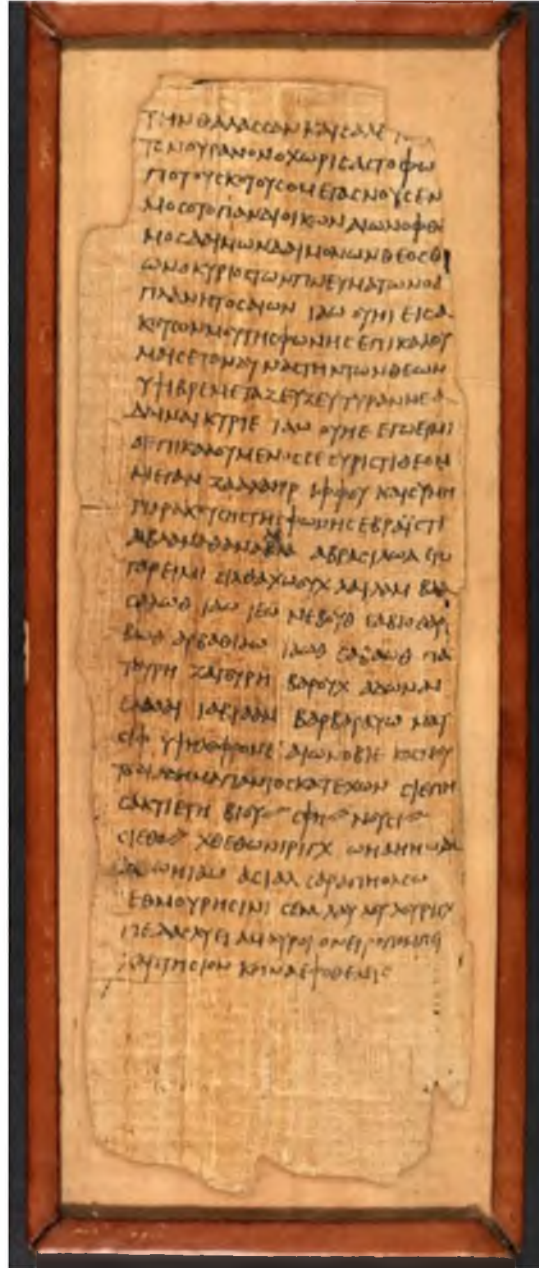 ΤΗΝΘΑΛΑCCΑΝΚΑΙCΑΛΕΥ
ΤΟΝΟΥΡΑΝΟΝΟΧΩΡΙCΑCΤΟΦΩ
ΠΟΤΟΥCΚΟΤΟΥCΟΜΕΓΑCΝΟΥCΕΝ
ΝΟΜΟCΟΤΟΠΑΝΔΙΟΙΚΩΝΑΙΩΝΟΦΘΑ
ΜΟCΔΑΙΜΩΝΔΑΙΜΟΝΩΝΘΕΟCΘ
ΩΝΟΚΥΡΙΟCΤΩΝΠΝΕΥΜΑΤΩΝΟΑ
ΠΛΑΝΗΤΟCΑΙΩΝ ΙΑΩ ΟΥΗΙ ΕΙCΑ
ΚΟΥCΟΝΜΟΥΤΗCΦΩΝΗCΕΠΙΚΑΛΟΥ
ΜΑΙCΕΤΟΝΔΥΝΑCΤΗΝΤΩΝΘΕΩΝ
ΥΨΙΒΡΕΜΕΤΑΖΕΥΖΕΥΤΥΡΑΝΝΕΑ
ΔΩΝΑΙΚΥΡΙΕ ΙΑΩ ΟΥΗΕ ΕΓΩΕΙΜΙ
ΟΕΠΙΚΑΛΟΥΜΕΝΟCCΕCΥΡΙCΤΙΘΕΟΝ
ΜΕΓΑΝ ΖΑΑΛΑΗΡ ΙΦΦΟΥ ΚΑΙCΥΜΗ
ΠΑΡΑΚΟΥCΗCΤΗCΦΩΝΗCΕΒΡΑΪCΤΙ
ΑΒΛΑΝΑΘΑΝΑΛΒΑ ΑΒΡΑCΙΛΩΑ ΕΓΩ
ΓΑΡΕΙΜΙ CΙΛΘΑΧΩΟΥΧ ΛΑΙΛΑΜ ΒΛΑ
CΑΛΩΘ ΙΑΩ ΙΕΩ ΝΕΒΟΥΘ CΑΒΙΟΘΑΡ
ΒΩΘ ΑΡΒΑΘΙΑΩ ΙΑΩΘ CΑΒΑΩΘ ΠΑ
ΤΟΥΡΗ ΖΑΓΟΥΡΗ ΒΑΡΟΥΧ ΑΔΩΝΑΙ
ΕΛΩΑΙ ΙΑΒΡΑΑΜ ΒΑΡΒΑΡΑΥΩ ΝΑΥ
CΙΦ ΥΨΗΛΟΦΡΟΝΕ ΑΙΩΝΟΒΙΕ ΚΟCΜΟΥ
ΤΟΔΙΑΔΗΜΑΠΑΝΤΟCΚΑΤΕΧΩΝ CΙΕΠΗ
CΑΚΤΙΕΤΗ ΒΙΟΥ CΦΗ ΝΟΥCΙ
CΙΕΘΟ ΧΘΕΘΩΝΙΡΙΓΧ ΩΗΑΗΗΩΑ
ΩΗΙΑΩ ΑCΙΑΛ CΑΡΑΠΙΟΛCΩ
ΕΘΜΟΥΡΗCΙΝΙ CΕΜ ΛΑΥ ΛΟΥ ΛΟΥΡΙΓΧ